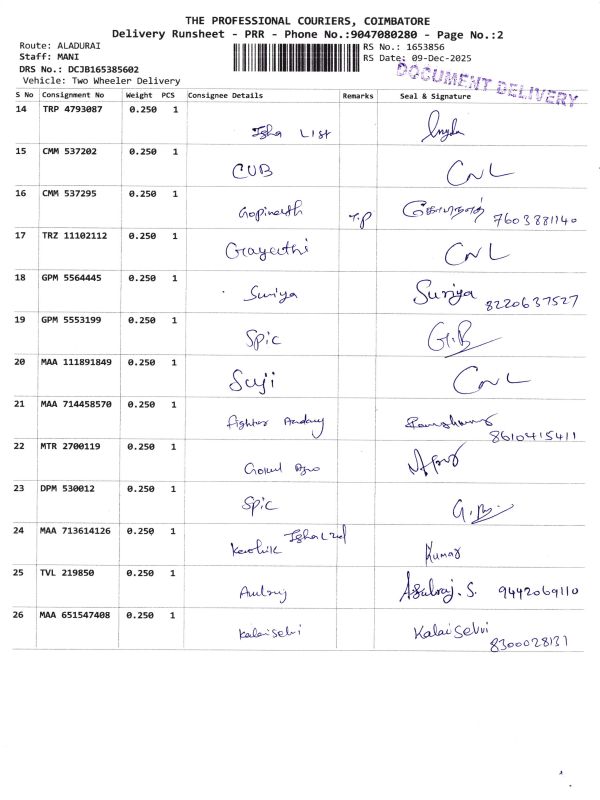 THE PROFESSIONAL COURIERS, COIMBATORE
Delivery Runsheet - PRR - Phone No.:9047080280 - Page No.:2
Route: ALADURAI
RS No.: 1653856
Staff: MANI
RS Date: 09-Dec-2025
DRS No.: DCJB165385602
DOCUMENT DELIVERY
Vehicle: Two Wheeler Delivery
S No Consignment No Weight PCS Consignee Details Remarks Seal & Signature
14 TRP 4793087 0.250 1
Isha List
15 CMM 537202 0.250 1
CUB CNL
16 CMM 537295 0.250 1
Gopinath T.P கோபிநாத் 7603881140
17 TRZ 11102112 0.250 1
Gayethi CNL
18 GPM 5564445 0.250 1
Suriya Suriya 8220637527
19 GPM 5553199 0.250 1
Spic G.B
20 MAA 111891849 0.250 1
Suji CNL
21 MAA 714458570 0.250 1
Fighter 8610415411
22 MTR 2700119 0.250 1
Gokul
23 DPM 530012 0.250 1
Spic G.B.
24 MAA 713614126 0.250 1
Isha
Karthik Kumar
25 TVL 219850 0.250 1
9442069110
26 MAA 651547408 0.250 1
Kalaiselvi Kalaiselvi
8300028131